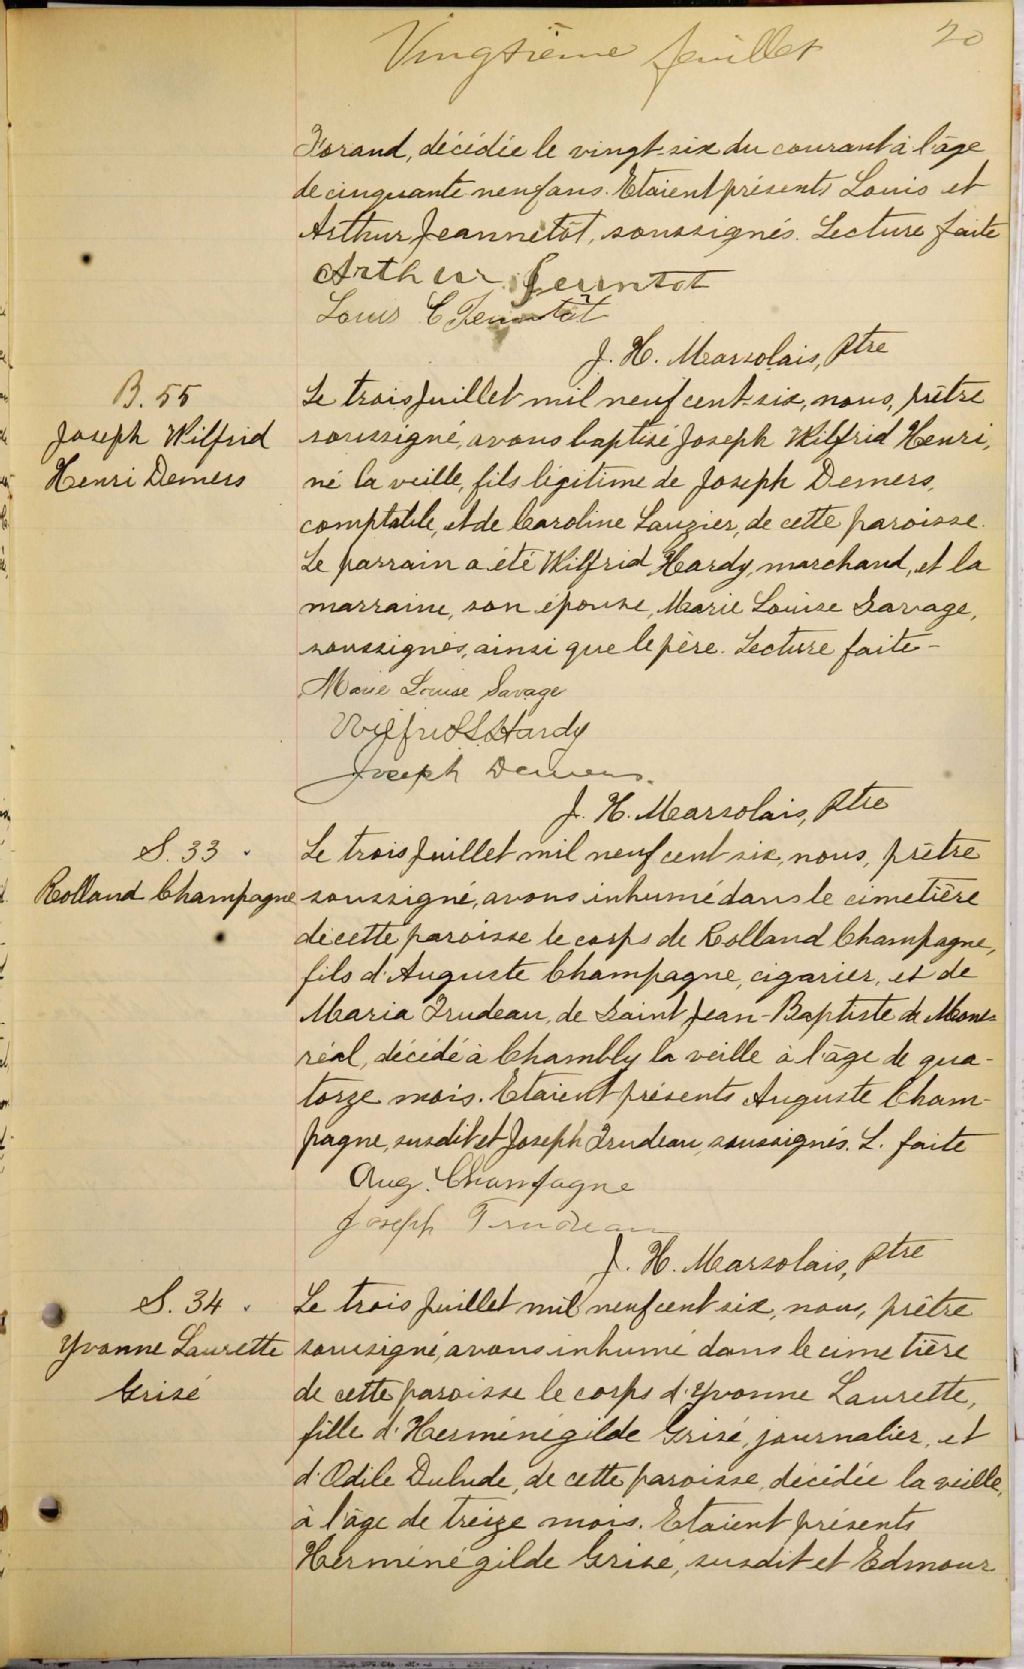 Vingtième feuillet
20
Forand, décédée le vingt-six du courant à l'âge
de cinquante neuf ans. Etaient présents Louis et
Arthur Jeannotôt, soussignés. Lecture faite
Arthur
Louis C
J. H. Marsolais, Ptre
B. 55
Joseph Wilfrid
Henri Demers
Le trois Juillet mil neuf cent-six, nous, prêtre
soussigné, avons baptisé Joseph Wilfrid Henri,
né la veille, fils légitime de Joseph Demers,
comptable, et de Caroline Lauzier, de cette paroisse.
Le parrain a été Wilfrid Hardy, marchand, et la
marraine, son épouse, Marie Louise Savage,
soussignés, ainsi que le père. Lecture faite-
Marie Louise Savage
Wilfrid L. Hardy
Joseph Demers.
J. H. Marsolais, Ptre
S. 33
Rolland Champagne
Le trois Juillet mil neuf cent-six, nous, prêtre
soussigné, avons inhumé dans le cimetière
de cette paroisse le corps de Rolland Champagne,
fils d'Auguste Champagne, cigarier, et de
Maria Trudeau, de Saint Jean-Baptiste de Mont-
réal, décédé à Chambly la veille à l'âge de qua-
torze mois. Etaient présents Auguste Cham-
pagne, susdit et Joseph Trudeau, soussignés. L. faite
Aug. Champagne
Joseph Trudeau
J. H. Marsolais, Ptre
S. 34
Yvonne Laurette
Grisé
Le trois Juillet mil neuf cent six, nous, prêtre
soussigné, avons inhumé dans le cimetière
de cette paroisse le corps d'Yvonne Laurette,
fille d'Herménégilde Grisé, journalier, et
d'Odile Dulude, de cette paroisse, décédée la veille,
à l'âge de treize mois. Etaient présents
Herménégilde Grisé, susdit et Edmour